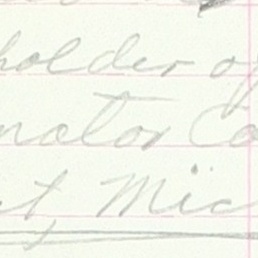 holder of
nator Co
t, Mic